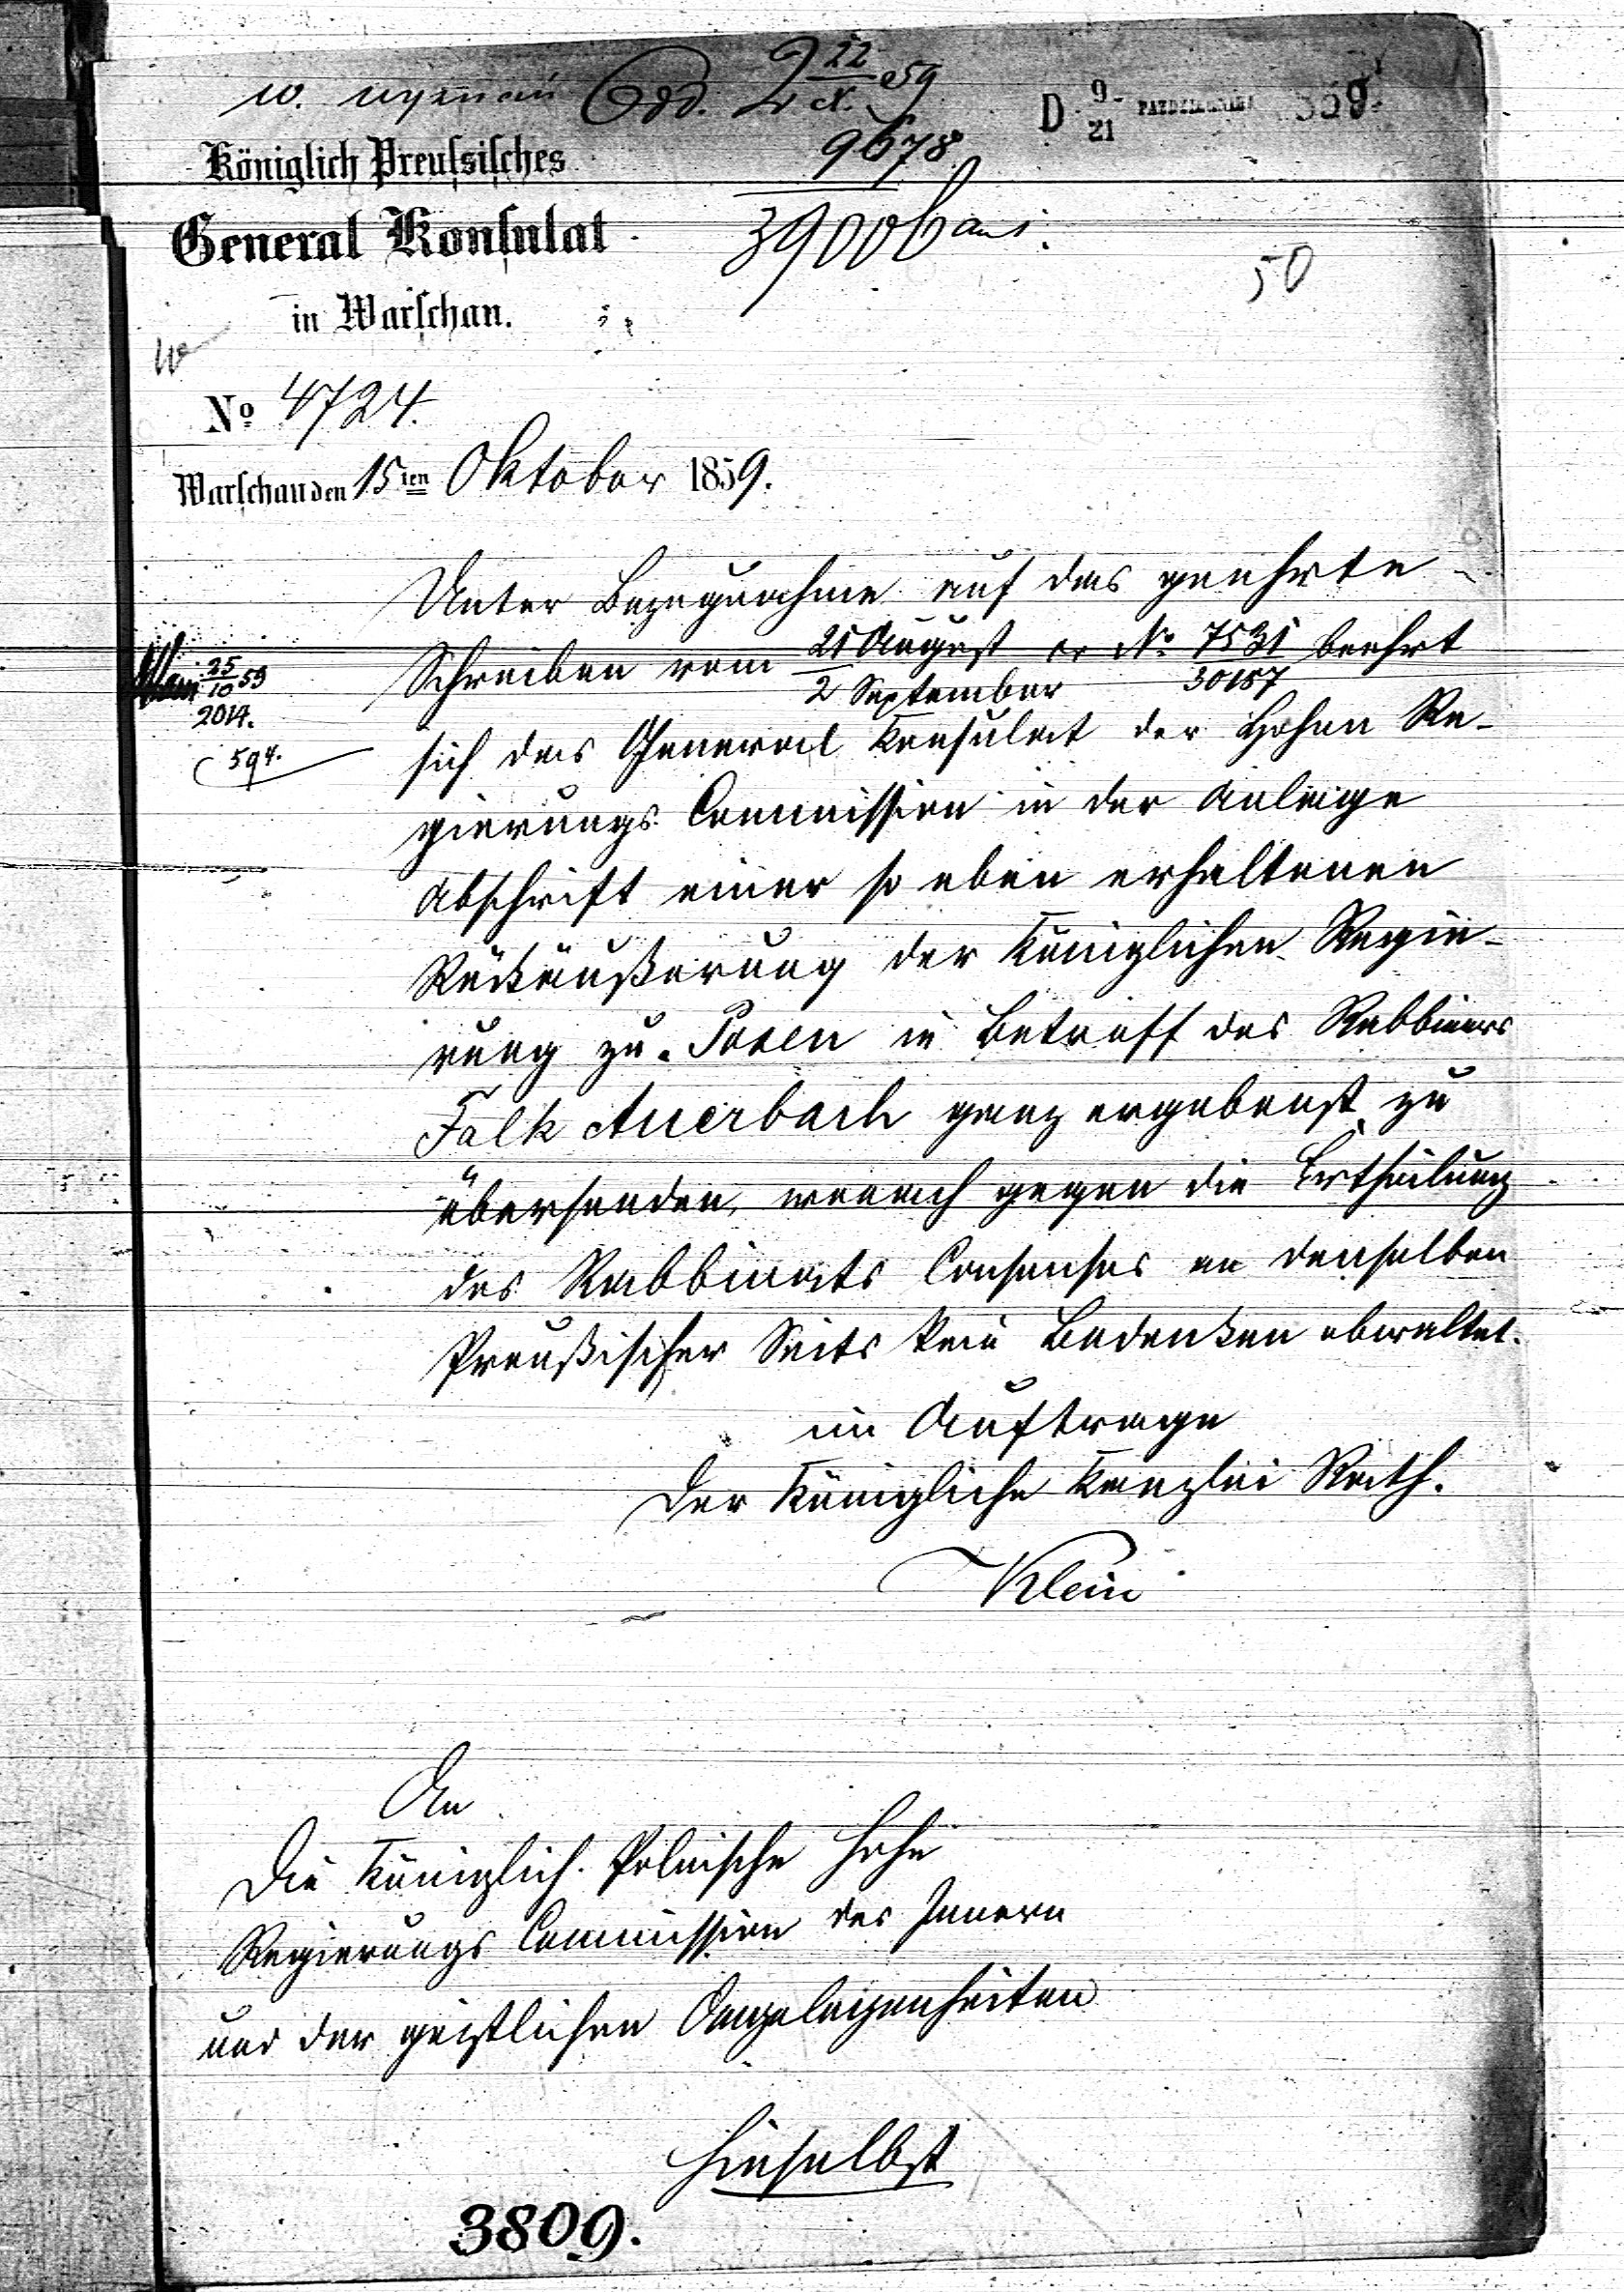 D. 9/21 PAZDZIERNIKA 859.
22/X 59
9678
39006
Königlich Preuſsiſches
General Konſulat
in Warſchau.
50
No 4724.
Warſchau den 15ten Oktober 1859.
Unter Bezugnahme auf das geehrte
Schreiben vom 21 August/2 September cr No 7531/30157 beehrt
sich das General Konsulat der Hohen Re-
gierungs Commission in der Anlage
Abschrift einer so eben erhaltenen
Rückäußerung der Königlichen Regie-
rung zu Posen in Betreff des Rabbiners
Falk Auerbach ganz ergebenst zu
übersenden, wonach gegen die Ertheilung
des Rabbinats Consenses an denselben
Preußischer Seits kein Bedenken obwaltet.
im Auftrage
Der Königliche Kanzlei Rath.
Klein
25/10 59
2014.
594.
An
Die Königlich Polnische Hohe
Regierungs Commission des Innern
und der geistlichen Angelegenheiten
Hieselbst
3809.